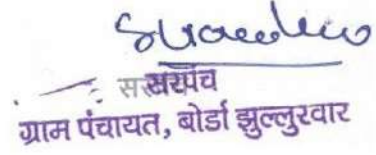 सरपंच
ग्राम पंचायत, बोर्डा झुल्लुरवार